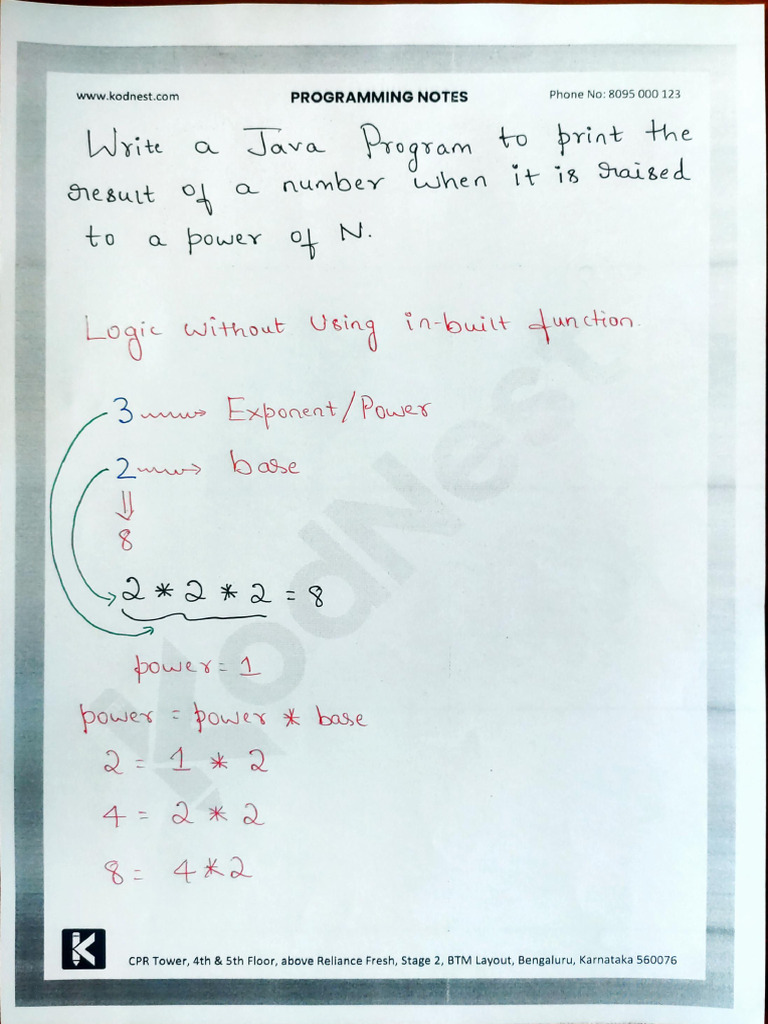 www.kodnest.com PROGRAMMING NOTES Phone No: 8095 000 123
Write a Java Program to print the
result of a number when it is raised
to a power of N.
Logic without using in-built function.
3 → Exponent/Power
2 → base
⇓
8
2 * 2 * 2 = 8
power = 1
power = power * base
2 = 1 * 2
4 = 2 * 2
8 = 4 * 2
KodNest
K
CPR Tower, 4th & 5th Floor, above Reliance Fresh, Stage 2, BTM Layout, Bengaluru, Karnataka 560076